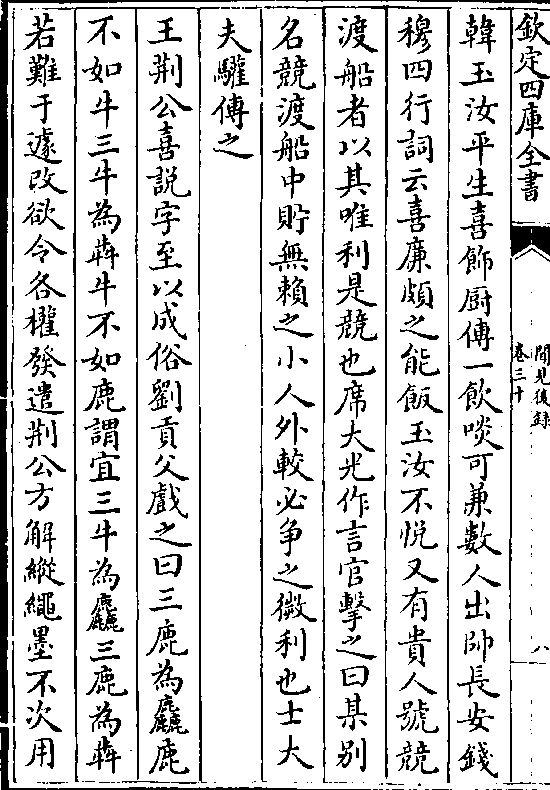 欽定四庫全書
聞見後録
卷三十
八
韓玉汝平生喜飾厨傳一飲啖可兼數人出帥長安錢
穆四行詞云喜廉頗之能飯玉汝不悦又有貴人號競
渡船者以其唯利是競也席大光作言官擊之曰某别
名競渡船中貯無賴之小人外較必争之微利也士大
夫驩傳之
王荆公喜説字至以成俗劉貢父戲之曰三鹿為麤鹿
不如牛三牛為犇牛不如鹿謂宜三牛為麤三鹿為犇
若難于遽改欲令各權發遣荆公方解縱繩墨不次用